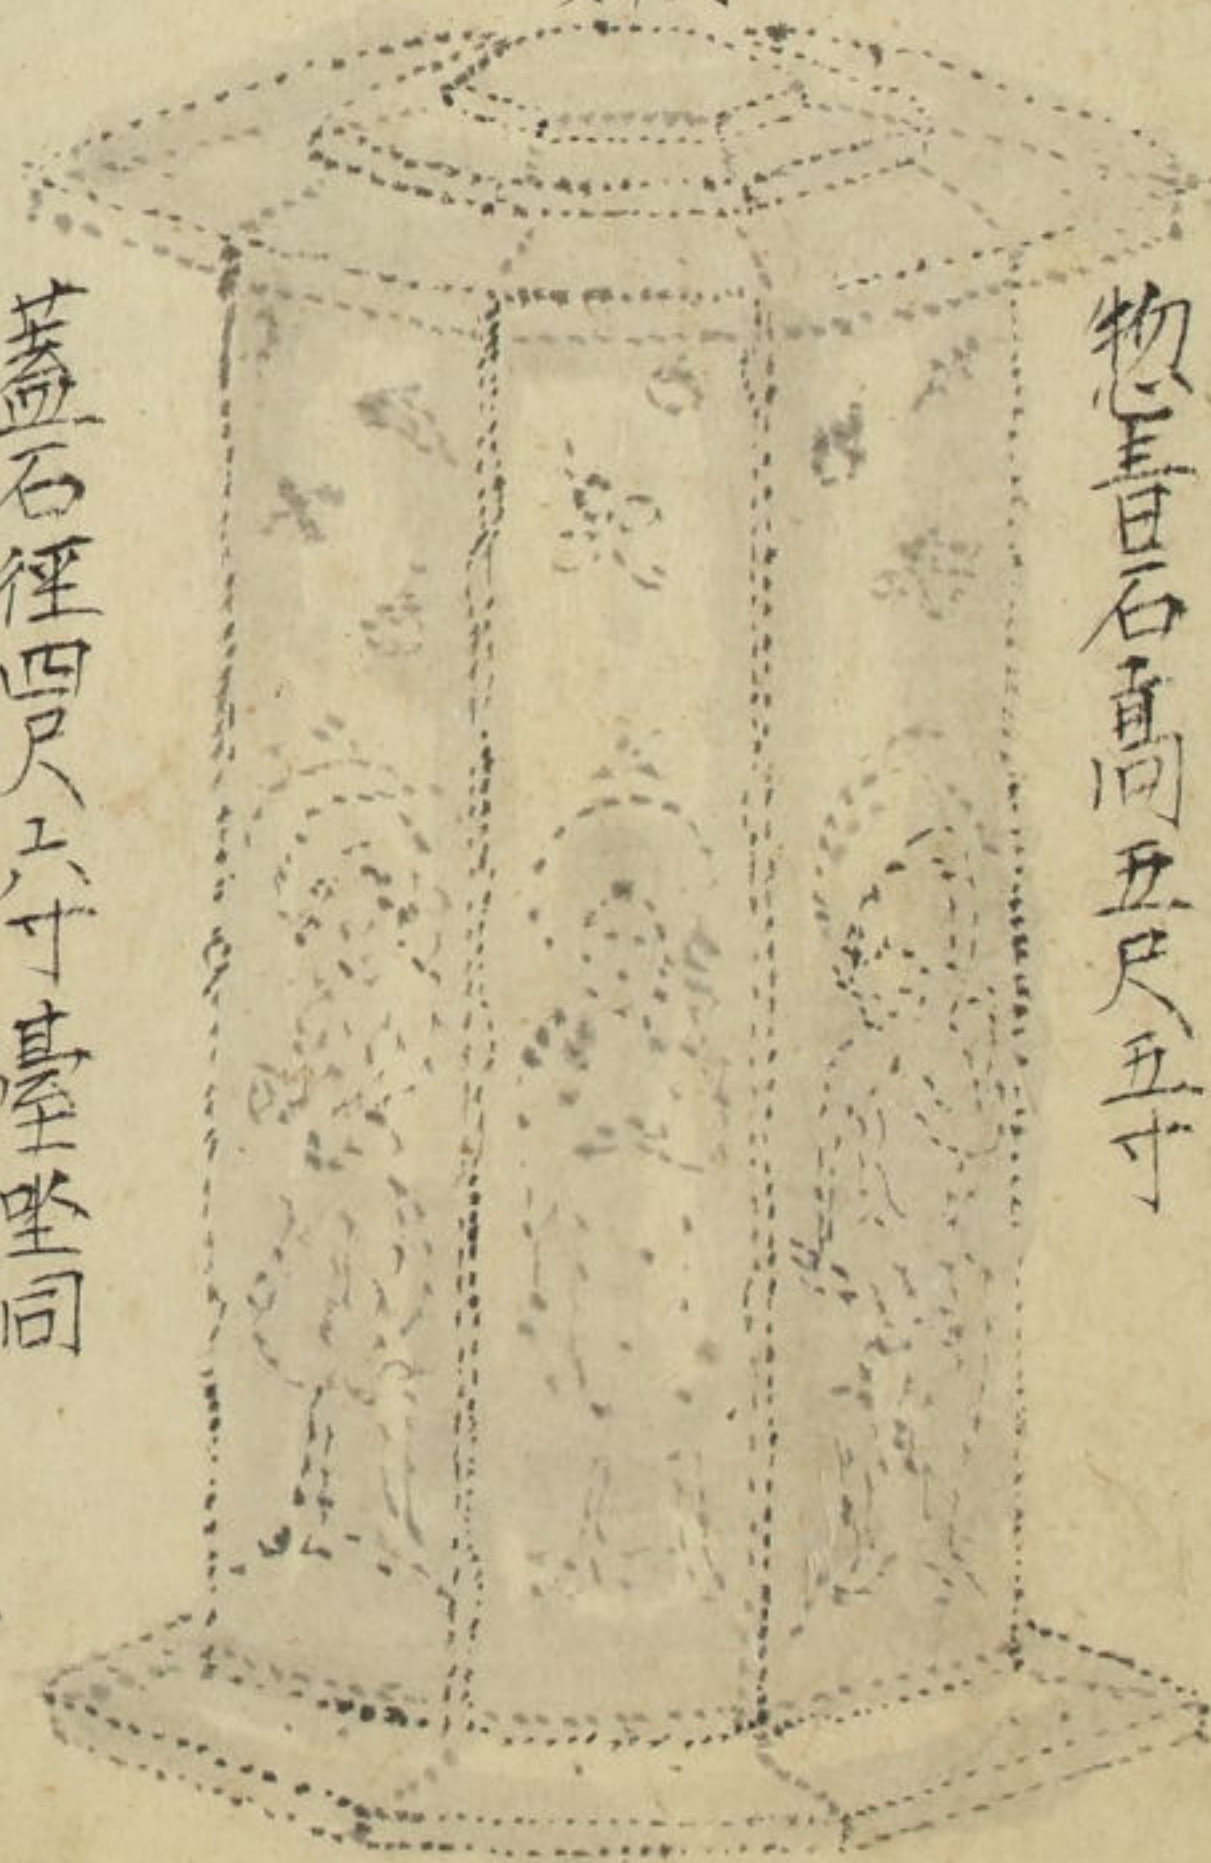 惣青石高五尺五寸
蓋石径四尺六寸臺坐同